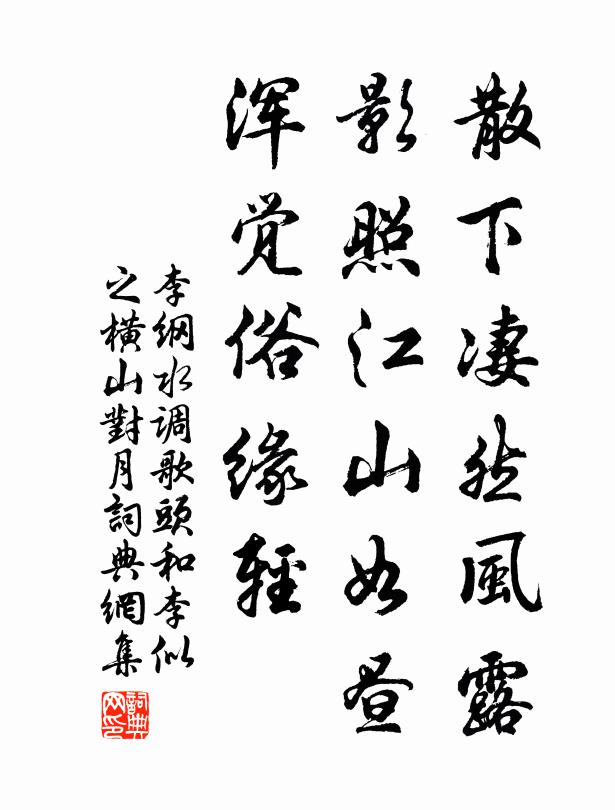 散下凄然風露
影照江山如昼
浑觉俗缘輕
李纲水调歌頭和李似
之横山對月詞典網集
詞典网印